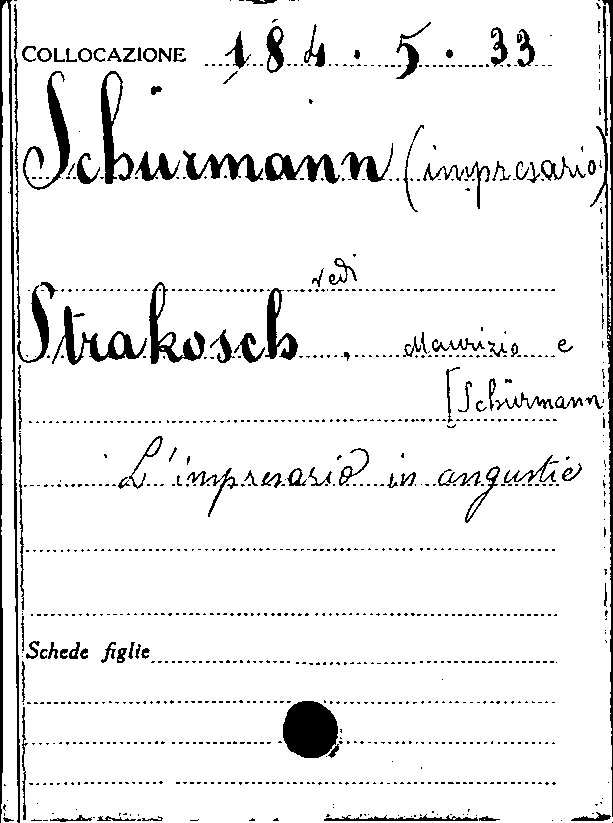 COLLOCAZIONE 184.5.33
Schürmann (impresario)
vedi
Strakosch. Maurizio e
[Schürmann
L'impresario in angustie
Schede figlie